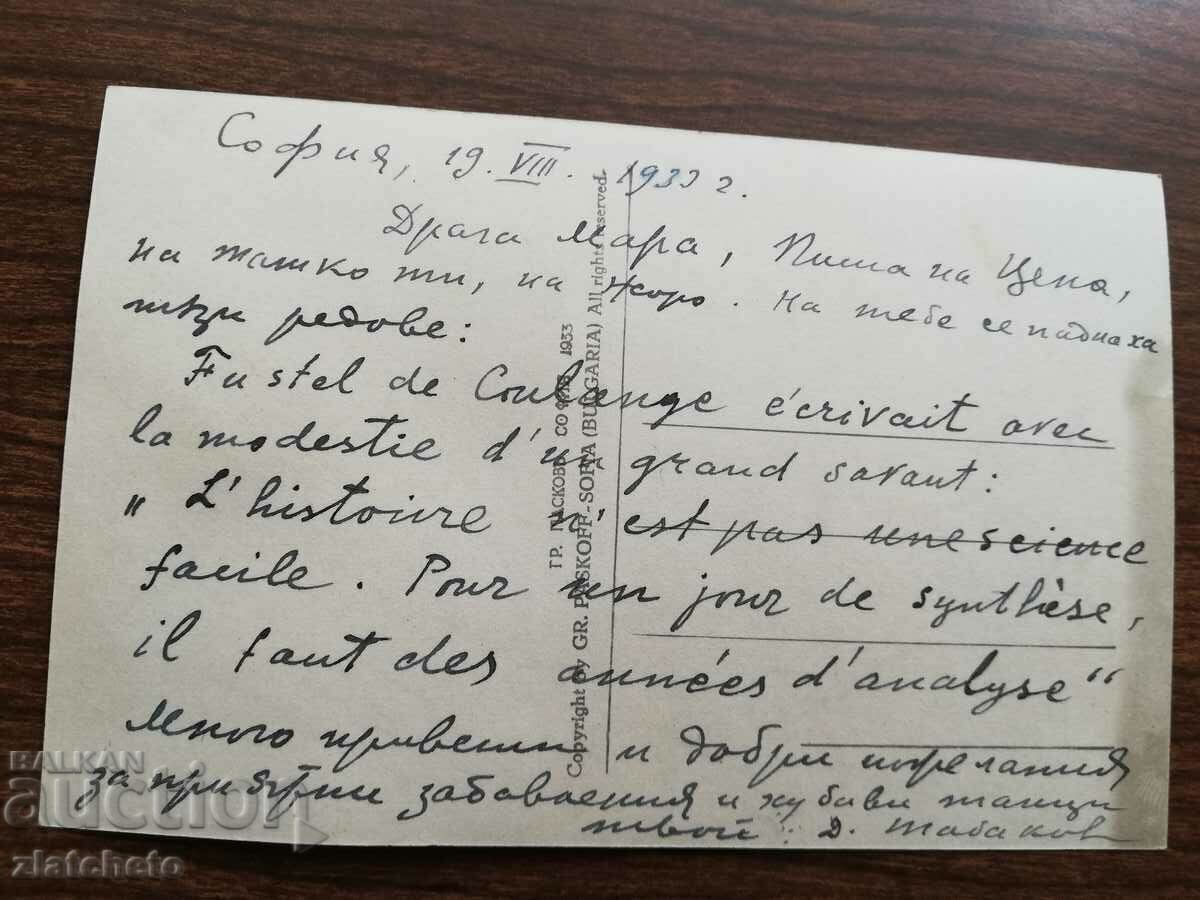 София, 19. VIII. 1933 г.
Драга Мара, Писа на Цена,
на татко ти, на Жоро. На тебе се паднаха
тези редове:
Fustel de Coulange écrivait avec
la modestie d'un grand savant:
„L'histoire n'est pas une science
facile. Pour un jour de synthèse,
il faut des années d'analyse“
Много привети и добри пожелания
за приятни забавления и хубави танци
твой: Д. Табаков
ГР. ПАСКОВЪ СОФИЯ 1933
Copyright by GR. PASKOFF-SOFIA (BULGARIA) All rights reserved.
BALKAN
auction
zlatcheto